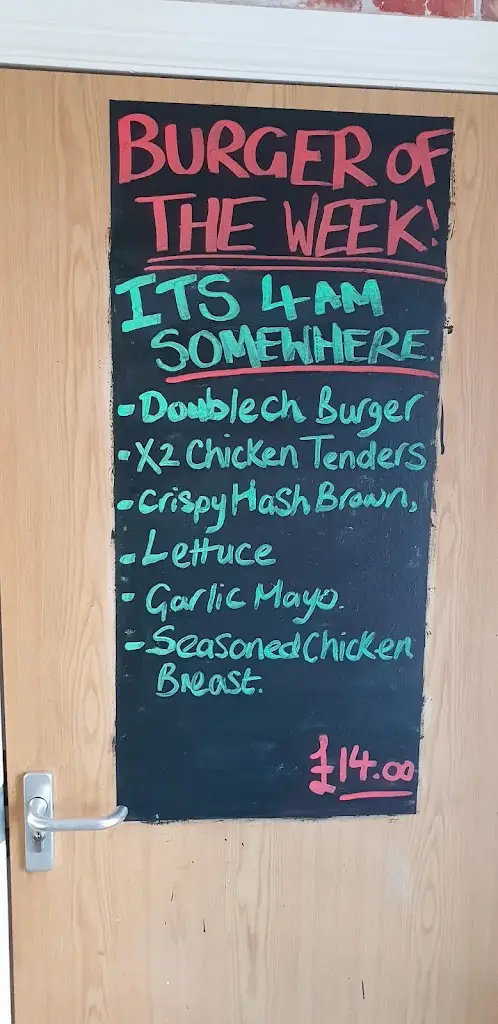 BURGER OF
THE WEEK!
ITS 4AM
SOMEWHERE.
- Doublech Burger
- X2 Chicken Tenders
- Crispy Hash Brown,
- Lettuce
- Garlic Mayo.
- Seasoned Chicken
Breast.
£14.00